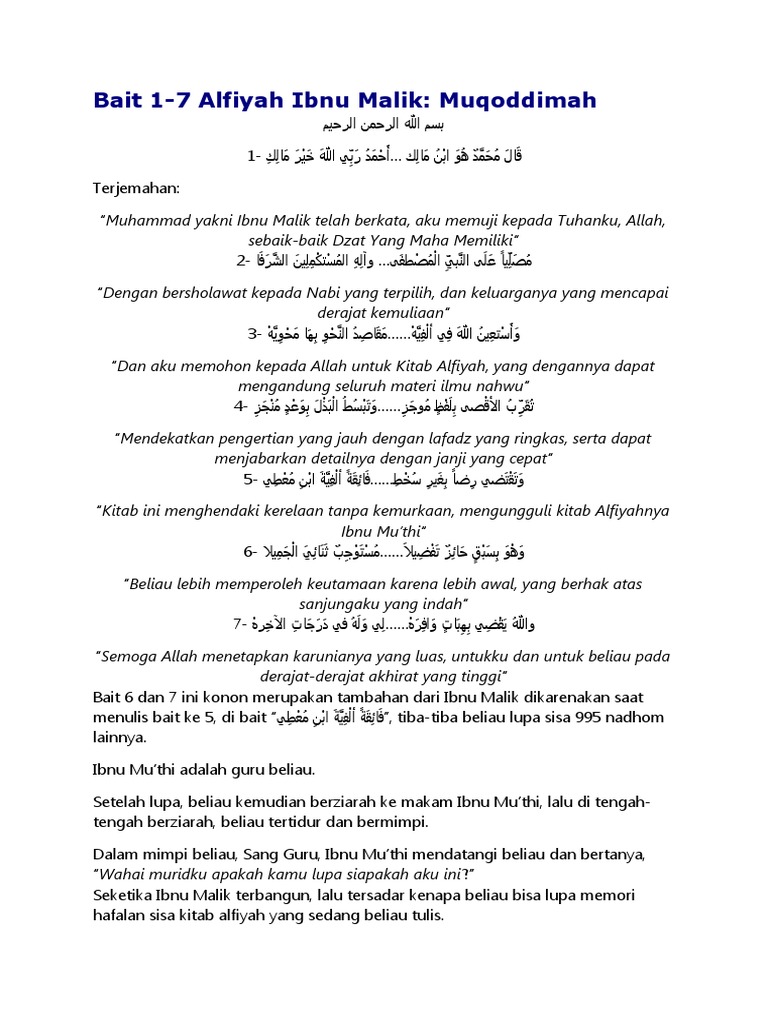 Bait 1-7 Alfiyah Ibnu Malik: Muqoddimah
بسم الله الرحمن الرحيم
1- قَالَ مُحَمَّدٌ هُوَ ابْنُ مَالِك ...أَحْمَدُ رَبِّي اللَّهَ خَيْرَ مَالِكِ
Terjemahan:
“Muhammad yakni Ibnu Malik telah berkata, aku memuji kepada Tuhanku, Allah,
sebaik-baik Dzat Yang Maha Memiliki”
2- مُصَلِّيَاً عَلَى النَّبِيِّ الْمُصْطَفَى... وآلِهِ المُسْتكْمِلِينَ الشَّرَفَا
“Dengan bersholawat kepada Nabi yang terpilih, dan keluarganya yang mencapai
derajat kemuliaan”
3- وَأَسْتعِينُ اللهَ فِي أَلْفِيَّهْ......مَقَاصِدُ النَّحْوِ بِهَا مَحْوِيَّهْ
“Dan aku memohon kepada Allah untuk Kitab Alfiyah, yang dengannya dapat
mengandung seluruh materi ilmu nahwu”
4- تُقَرِّبُ الأَقْصى بِلَفْظٍ مُوجَزِ......وَتَبْسُطُ الْبَذْلَ بِوَعْدٍ مُنْجَزِ
“Mendekatkan pengertian yang jauh dengan lafadz yang ringkas, serta dapat
menjabarkan detailnya dengan janji yang cepat”
5- وَتَقْتَضي رِضاً بِغَيرِ سُخْطِ......فَائِقَةً أَلْفِيَّةَ ابْنِ مُعْطِي
“Kitab ini menghendaki kerelaan tanpa kemurkaan, mengungguli kitab Alfiyahnya
Ibnu Mu’thi”
6- وَهْوَ بِسَبْقٍ حَائِزٌ تَفْضِيلاً......مُسْتَوْجِبٌ ثَنَائِيَ الْجَمِيلا
“Beliau lebih memperoleh keutamaan karena lebih awal, yang berhak atas
sanjungaku yang indah”
7- واللهُ يَقْضِي بِهِبَاتٍ وَافِرَهْ......لِي وَلَهُ في دَرَجَاتِ الآخِرهْ
“Semoga Allah menetapkan karunianya yang luas, untukku dan untuk beliau pada
derajat-derajat akhirat yang tinggi”
Bait 6 dan 7 ini konon merupakan tambahan dari Ibnu Malik dikarenakan saat
menulis bait ke 5, di bait “فَائِقَةً أَلْفِيَّةَ ابْنِ مُعْطِي”, tiba-tiba beliau lupa sisa 995 nadhom
lainnya.
Ibnu Mu’thi adalah guru beliau.
Setelah lupa, beliau kemudian berziarah ke makam Ibnu Mu’thi, lalu di tengah-
tengah berziarah, beliau tertidur dan bermimpi.
Dalam mimpi beliau, Sang Guru, Ibnu Mu’thi mendatangi beliau dan bertanya,
“Wahai muridku apakah kamu lupa siapakah aku ini?”
Seketika Ibnu Malik terbangun, lalu tersadar kenapa beliau bisa lupa memori
hafalan sisa kitab alfiyah yang sedang beliau tulis.